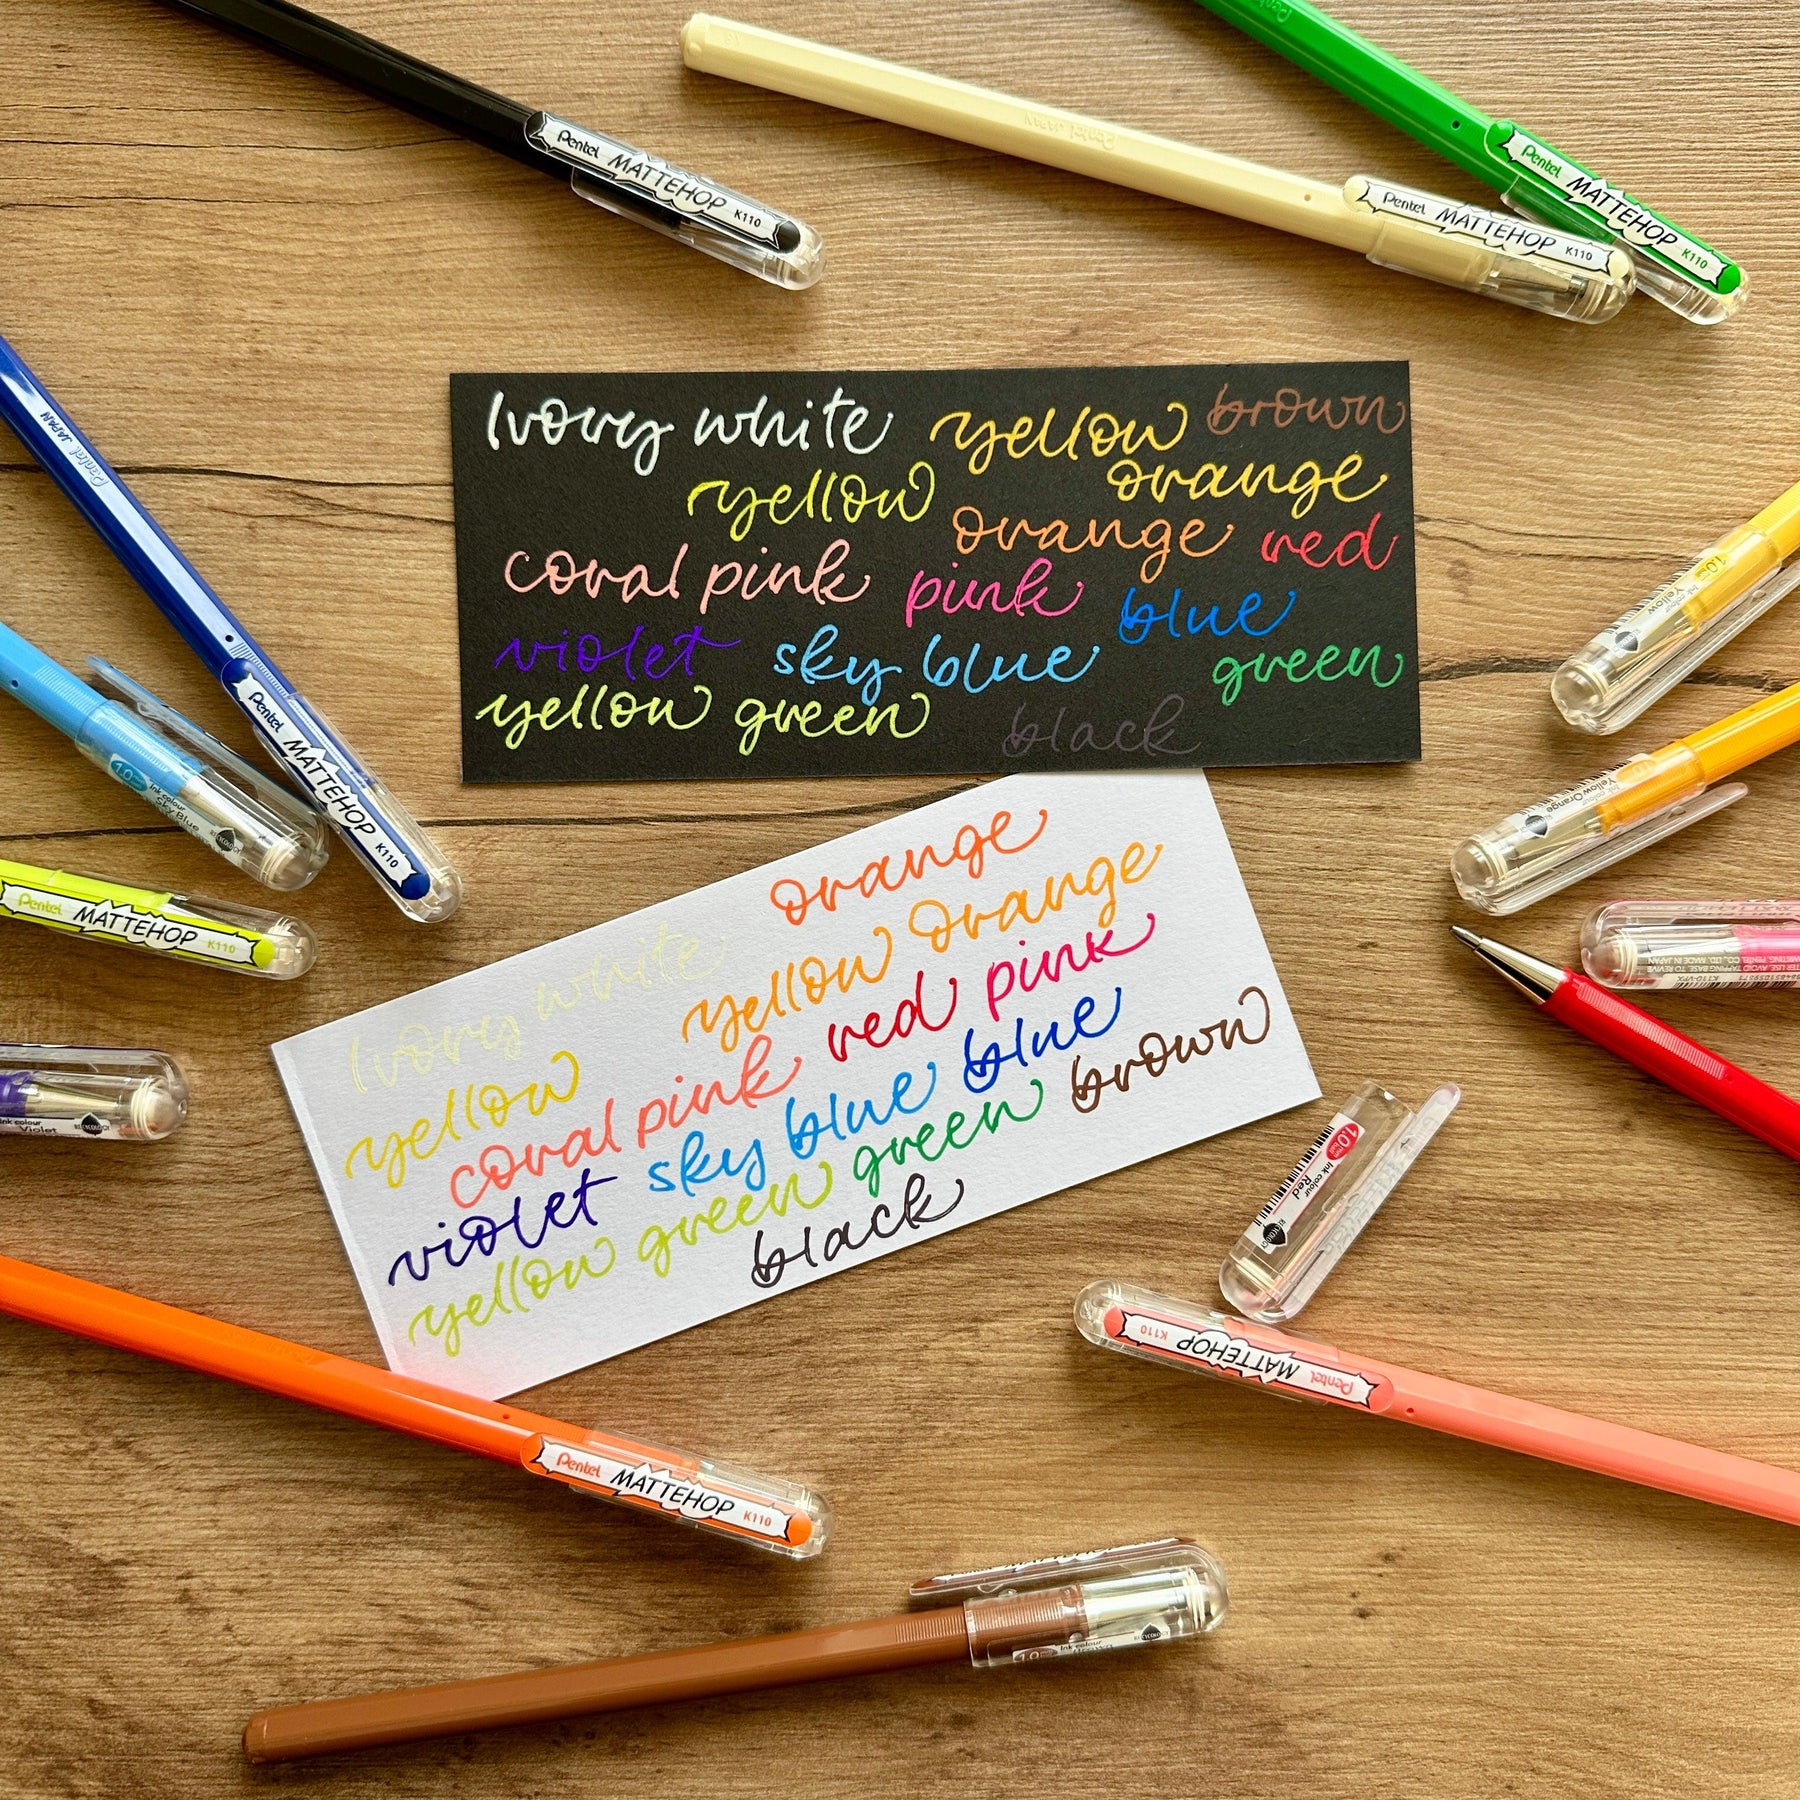 Pentel MATTEHOP K110
Pentel JAPAN
Pentel MATTEHOP K110
Pentel
Pentel MATTEHOP K110
Ivory white yellow brown
yellow orange
orange red
coral pink pink blue
violet sky blue green
yellow green black
Pentel JAPAN
Pentel MATTEHOP K110
1.0 Ink colour Sky Blue
RECYCOLOGY
Pentel MATTEHOP K110
Ink colour Violet
RECYCOLOGY
1.0 Yellow
Ink colour Yellow Orange
CO., LTD. MADE IN JAPAN
orange
Ivory white yellow orange
yellow red pink
coral pink blue
violet sky blue brown
yellow green green
black
1.0 Ink colour Red
RECYCOLOGY
Pentel MATTEHOP K110
Pentel MATTEHOP K110
1.0 Ink colour Brown
RECYCOLOGY